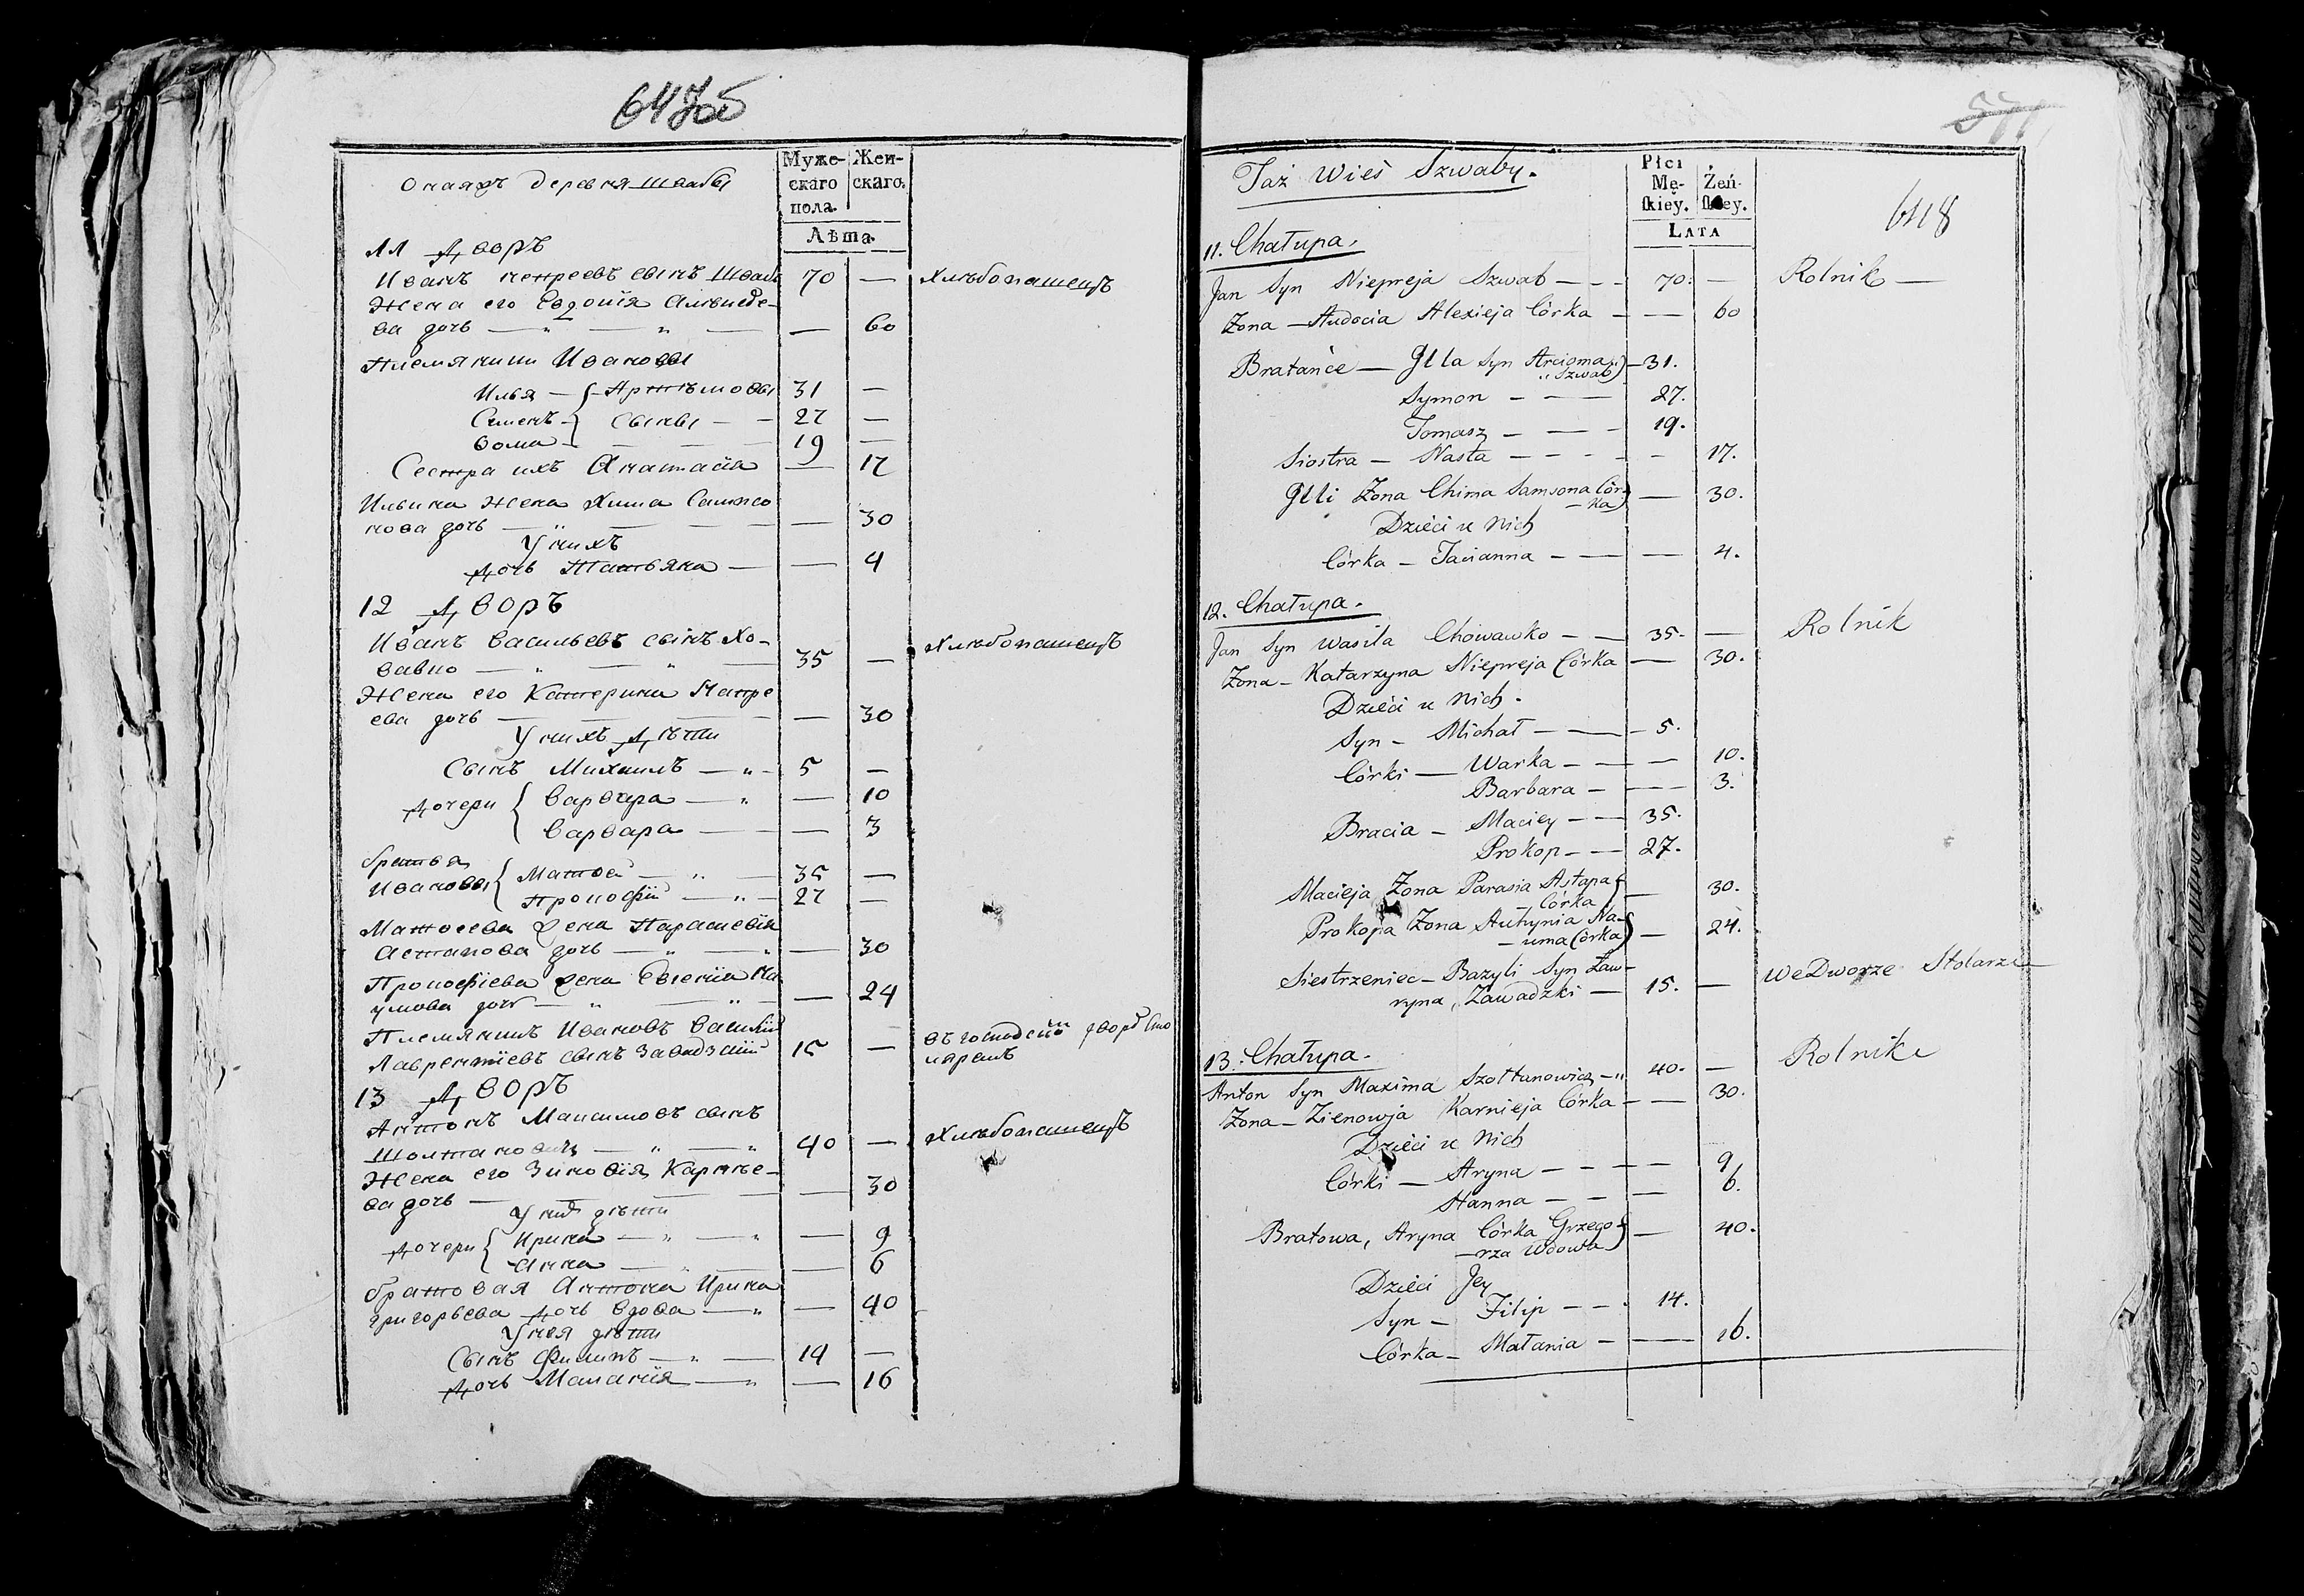 647об
Муже- Жен-
скаго скаго.
пола.
Лѣта.
Онаяжъ деревня Швабы
11 Дворъ
Иванъ непреевъ сынъ Швабъ 70 — Хлѣбопашецъ
Жена его Евдокія Алексѣе-
ва дочь — „ — „ — — 60
Племянники Ивановы
Илья — { Артѣмовы 31 —
Семенъ { сыны — — 27 —
Ѳома — — — 19 —
Сестра ихъ Анастасія — 17
Ильина жена Хима Самсо
нова дочь — „ — — — 30
У нихъ
Дочь Татьяна — — 4
12 Дворъ
Иванъ Васильевъ сынъ Хо- Хлѣбопашецъ
вавко — „ — „ — 35 —
Жена его Катерина Непре
ева дочь — — — — 30
У нихъ Дѣти
Сынъ Михаилъ — „ - 5 —
Дочери { Варвара — „ — 10
Варвара — — — 3
братья
Ивановы { Матвей — „ — 35 —
Прокофій — „ — 27 —
Матвеева жена Парасковія
Астапова дочь — „ — „ — 30
Прокофіева жена Евгенія На
умова дочь — „ — „ — — 24
Племянникъ Ивановъ Василій —
Лаврентіевъ сынъ Завадзкій 15 — въ господскомъ дворѣ сто
ляремъ
13 Дворъ
Антонъ Максимовъ сынъ
Шолтановичъ — „ — „ 40 — Хлѣбопашецъ
Жена его Зиновія Карнѣе-
ва дочь — — — — 30
У нихъ дѣти
Дочери { Ирина — „ — „ — 9
Анна — „ — — 6
братовая Антона Ирина
Григорьева Дочь вдова — „ — 40
У нея дѣти
Сынъ Филипъ — „ — 14 —
Дочь Маланія — „ — 16
571
648
Płci
Mę- Żeń-
ſkiey. ſkiey.
LATA
Taż Wieś Szwaby.
11. Chałupa.
Jan Syn Niepreja Szwab — - - 70. — Rolnik —
Zona — Audocia Alexieja Córka - — 60
Bratańce — Illa Syn Arcioma) — 31.
„ Szwab)
Symon - — — 27.
Tomasz - — - 19.
Siostra — Nasta - - - - - 17.
Illi Zona Chima Samsona Cór} — 30.
- ka)
Dzieci u Nich
Córka — Tacianna - — — 4.
12. Chałupa.
Jan Syn Wasila Chowawko - — 35. — Rolnik
Zona — Katarzyna Niepreja Córka — 30.
Dzieci u Nich.
Syn — Michał - — - 5.
Córki — Warka - — — 10.
Barbara - - - - 3.
Bracia — Maciey - — 35.
Prokop - — 27.
Macieja Zona Parasia Astapa { — 30.
Córka {
Prokopa Zona Auhynia Na-} — 24.
- uma Córka)
Siestrzeniec — Bazyli Syn Ław-
ryna, Zawadzki — 15. — We Dworze Stolarze
13. Chałupa.
Anton Syn Maxima Szołtanowicz - „ 40. — Rolnik
Zona — Zienowja Karnieja Córka - — 30.
Dzieci u Nich
Córki — Aryna - - - — 9
Hanna - - — 6.
Bratowa, Aryna Córka Grzego-{ — 40.
- rza Wdowa)
Dzieci Jey
Syn — Filip - - - 14.
Córka — Małania - — 16.